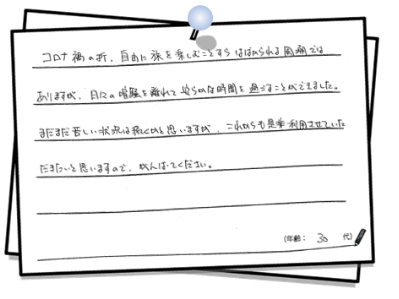 コロナ禍の折、自由に旅を楽しむことすらはばかられる周期では
ありますが、日々の喧騒を離れて安らかな時間を過ごすことができました。
まだまだ苦しい状況は続くかと思いますが、これからも是非利用させていた
だきたいと思いますので、がんばってください。
(年齢: 30 代)